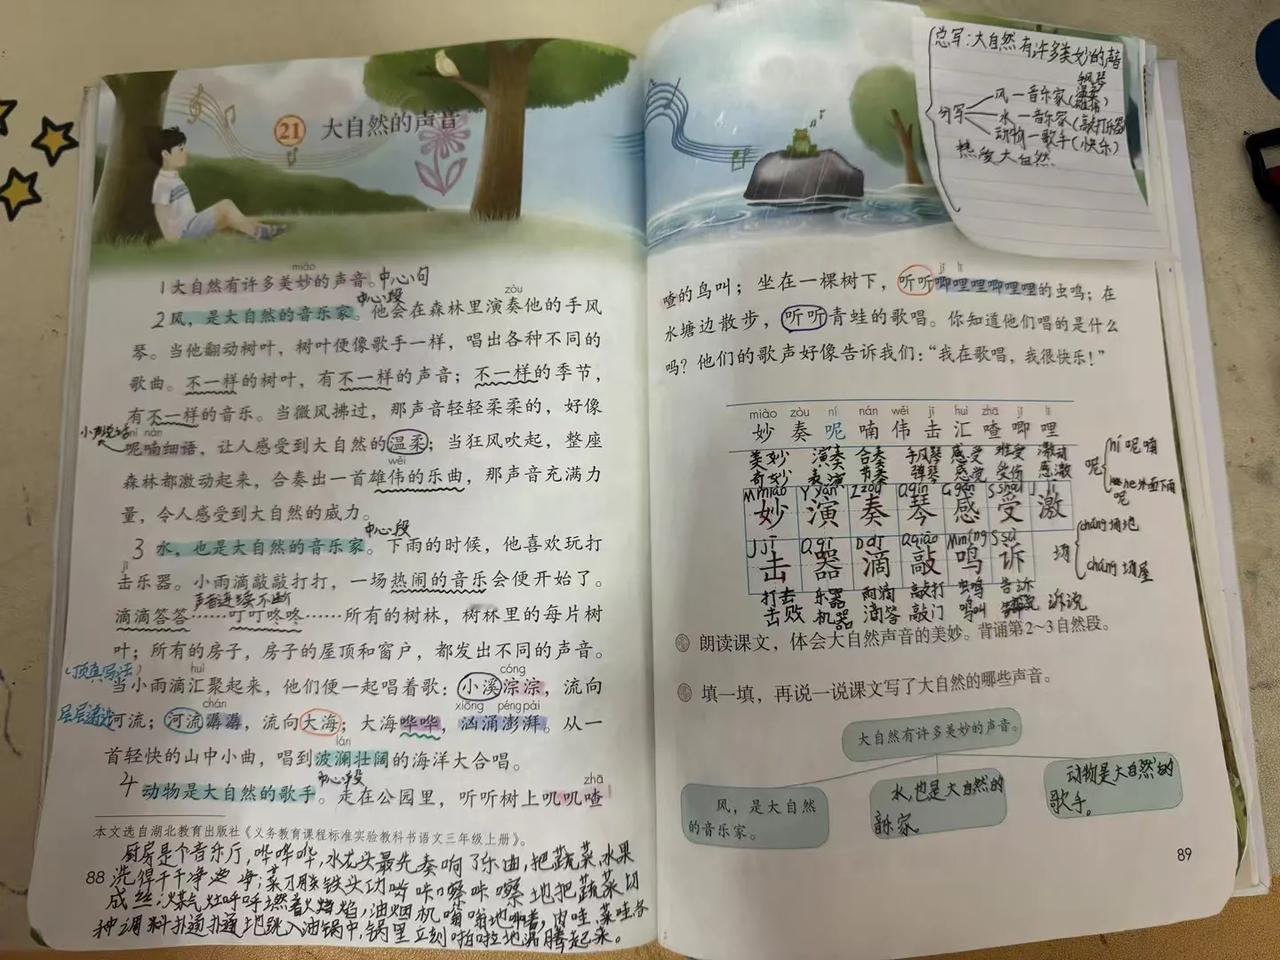 21 大自然的声音
miào
1大自然有许多美妙的声音。中心句
中心段
zòu
2风，是大自然的音乐家。他会在森林里演奏他的手风
琴。当他翻动树叶，树叶便像歌手一样，唱出各种不同的
歌曲。不一样的树叶，有不一样的声音；不一样的季节，
有不一样的音乐。当微风拂过，那声音轻轻柔柔的，好像
ní nán
呢喃细语，让人感受到大自然的温柔；当狂风吹起，整座
wěi
森林都激动起来，合奏出一首雄伟的乐曲，那声音充满力
量，令人感受到大自然的威力。
中心段
3 水，也是大自然的音乐家。下雨的时候，他喜欢玩打
jī
击乐器。小雨滴敲敲打打，一场热闹的音乐会便开始了。
声音连续不断
滴滴答答……叮叮咚咚……所有的树林，树林里的每片树
叶；所有的房子，房子的屋顶和窗户，都发出不同的声音。
(顶真写法)
huì cóng
当小雨滴汇聚起来，他们便一起唱着歌：小溪淙淙，流向
层层递进
chán xiōng péng pài
河流；河流潺潺，流向大海；大海哗哗，汹涌澎湃。从一
lán
首轻快的山中小曲，唱到波澜壮阔的海洋大合唱。
中心段
zhā
4 动物是大自然的歌手。走在公园里，听听树上叽叽喳
本文选自湖北教育出版社《义务教育课程标准实验教科书语文三年级上册》。
厨房是个音乐厅，哗哗哗，水龙头最先奏响了乐曲，把蔬菜、水果
88
洗得干干净净；
咔嚓咔嚓地把蔬菜切
成丝；煤气灶呼呼燃着火焰，油烟机嗡嗡地
种调料扑通扑通地跳入油锅中，锅里立刻啪啦地沸腾起来。
总写：大自然有许多美妙的声音
手风琴
分写
风—音乐家
水—音乐家(敲打乐器)
动物—歌手(快乐)
热爱大自然
jī lī
喳的鸟叫；坐在一棵树下，听听唧哩哩唧哩哩的虫鸣；在
水塘边散步，听听青蛙的歌唱。你知道他们唱的是什么
吗？他们的歌声好像告诉我们：“我在歌唱，我很快乐！”
miào zòu ní nán wěi jī huì zhā jī lī
妙 奏 呢 喃 伟 击 汇 喳 唧 哩
美妙 演奏 合奏 手风琴 感受 难受 激动
奇妙 表演 节奏 弹琴 感觉 受伤 感激
M miào Y yǎn Z zòu Q qín G gǎn S shòu J jī
妙 演 奏 琴 感 受 激
J jī Q qì D dī Q qiāo M míng S sù
击 器 滴 敲 鸣 诉
打击 乐器 雨滴 敲打 虫鸣 告诉
击败 机器 滴答 敲门 鸣叫 诉说
呢
ní 呢喃
ne 外面下雨呢
场
cháng 场地
chǎng 场屋
朗读课文，体会大自然声音的美妙。背诵第2~3自然段。
填一填，再说一说课文写了大自然的哪些声音。
大自然有许多美妙的声音。
风，是大自然
的音乐家。
水，也是大自然的
音乐家
动物是大自然的
歌手。
89